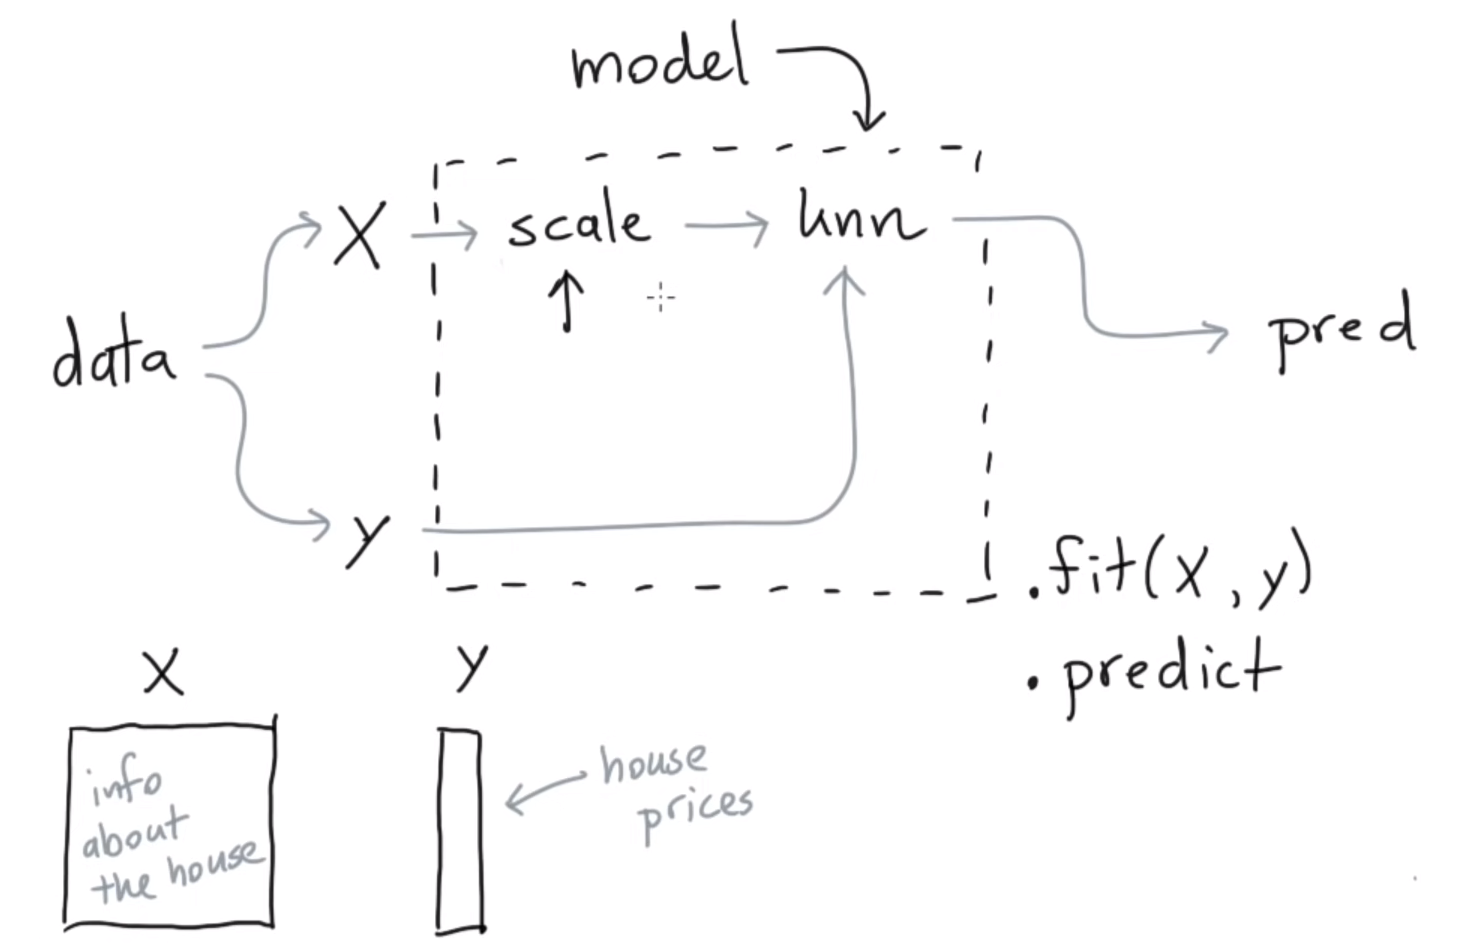 model
X
scale
knn
data
pred
y
.fit(X, y)
.predict
X
y
info
about
the house
house
prices